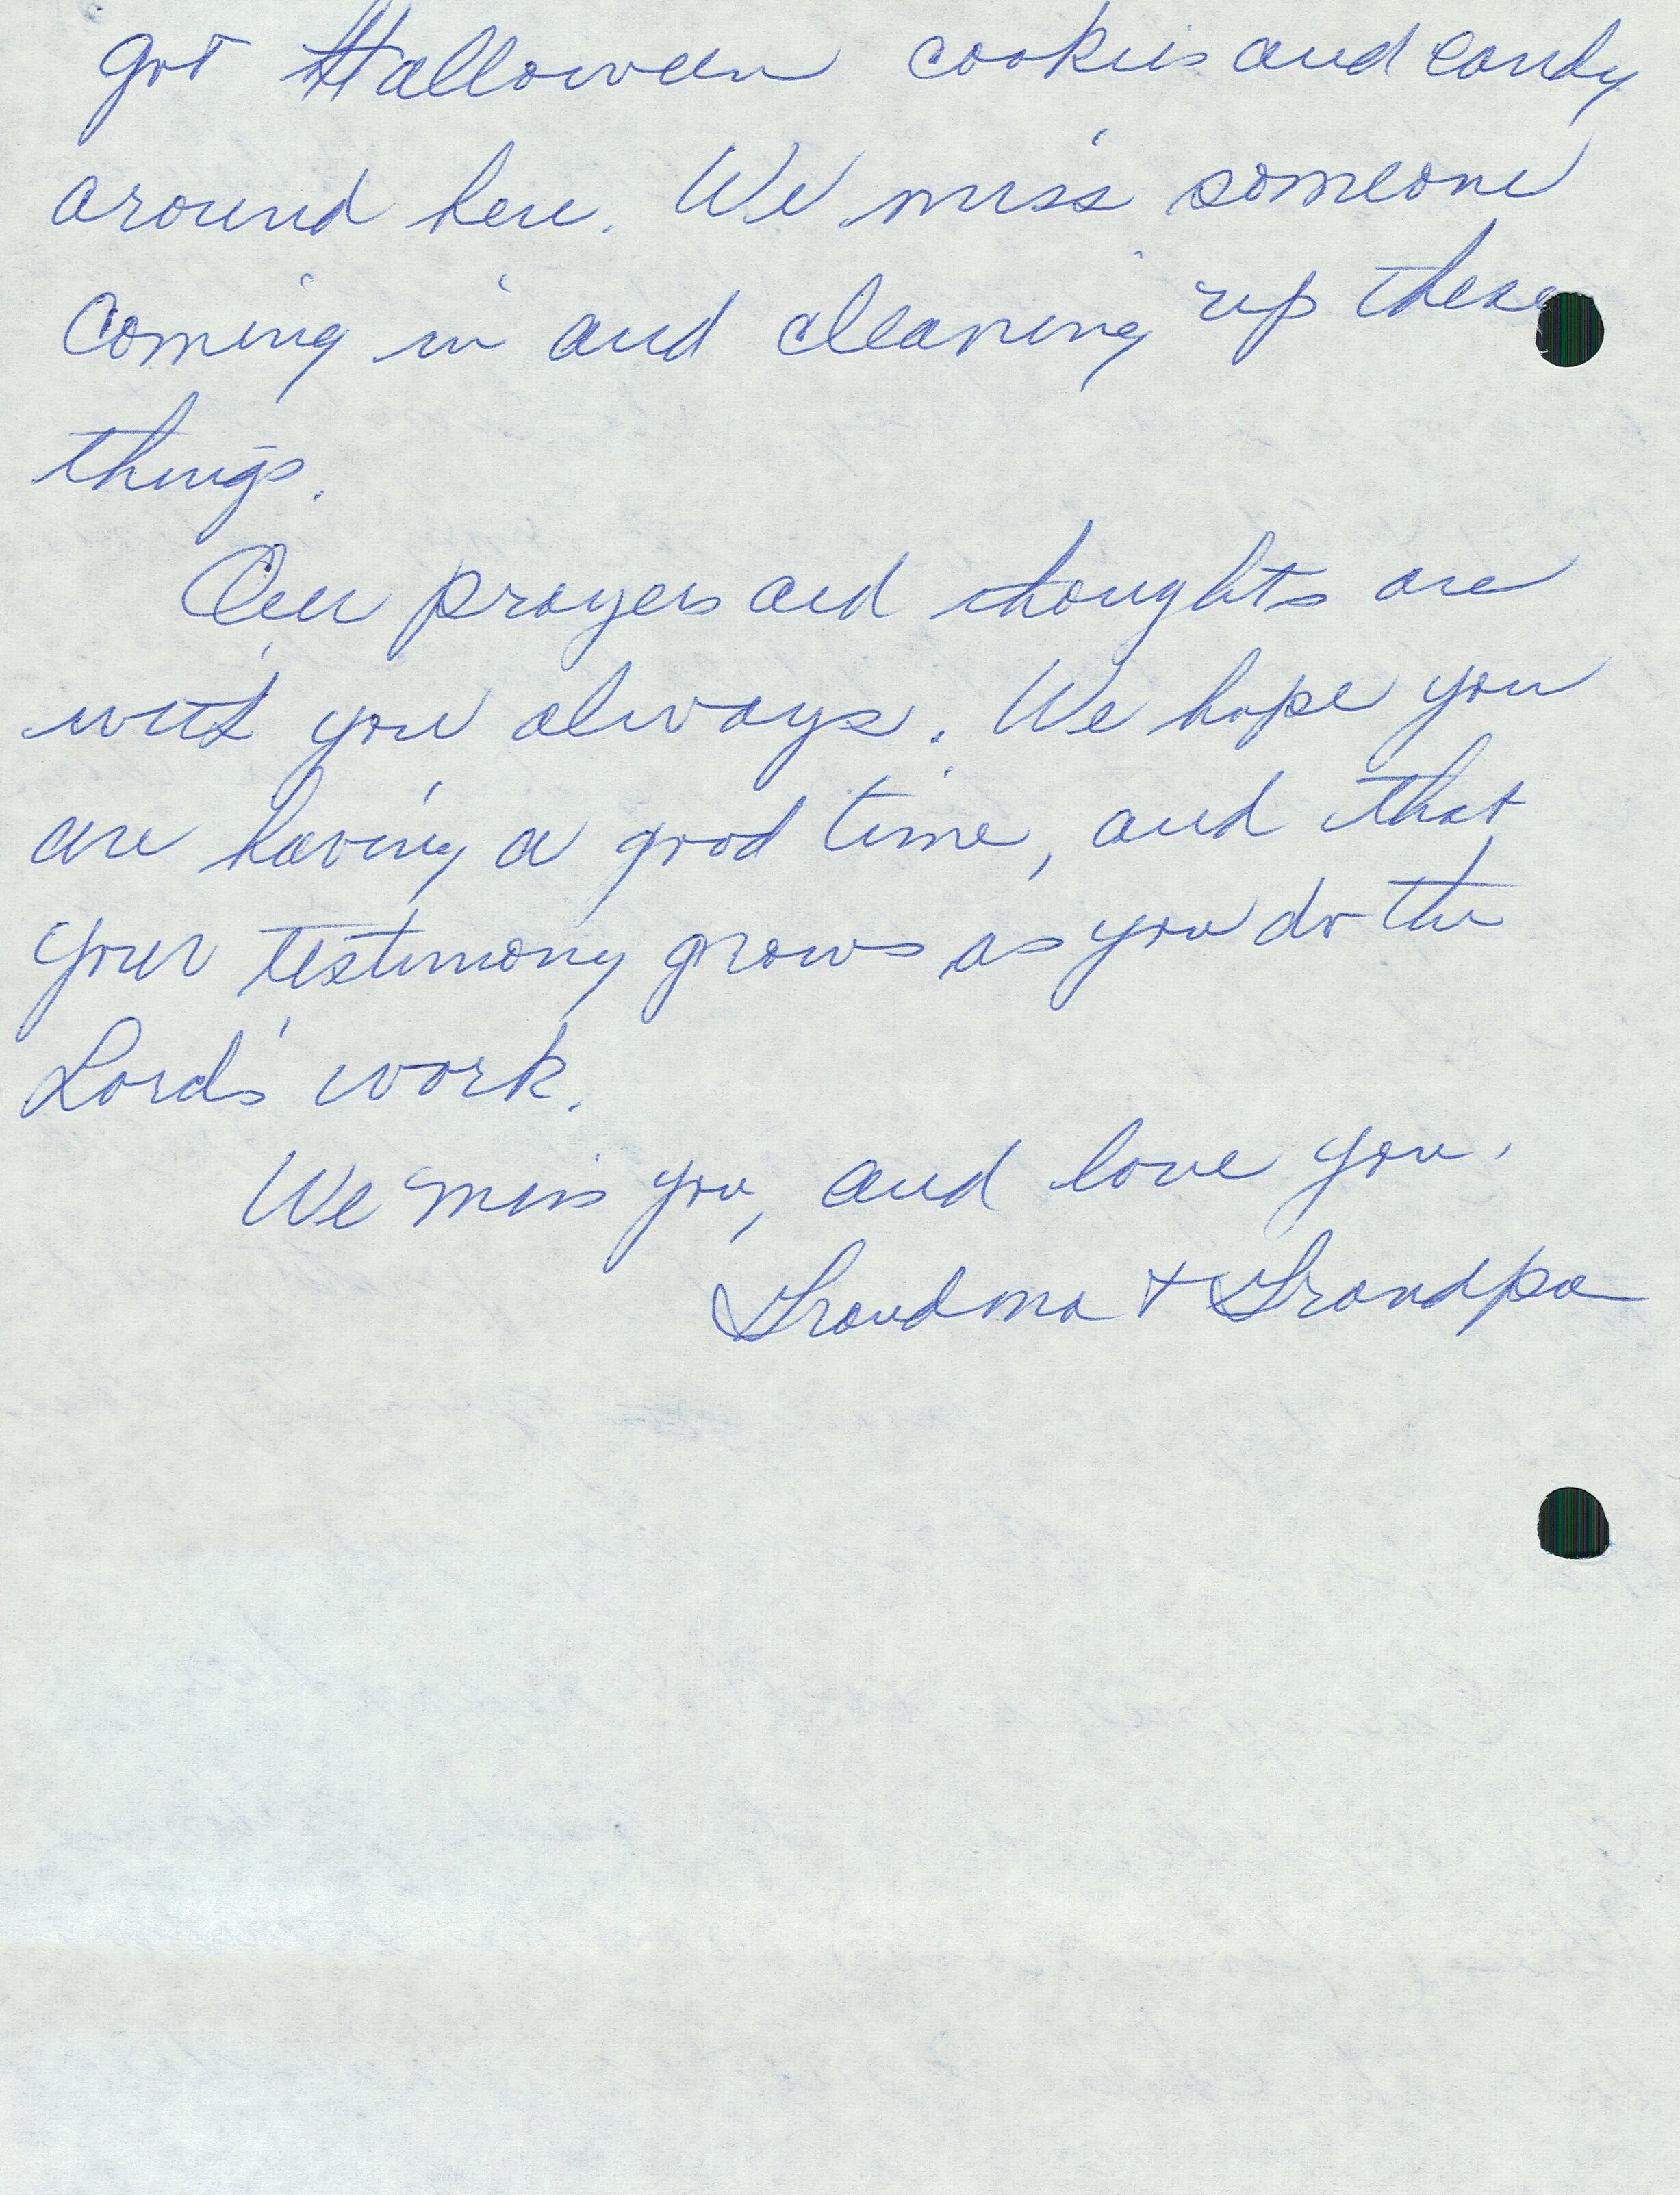 got Halloween cookies and candy
around here. We miss someone
coming in and cleaning up these
things.
Our prayers and thoughts are
with you always. We hope you
are having a good time, and that
your testimony grows as you do the
Lord's work.
We miss you, and love you.
Grandma + Grandpa